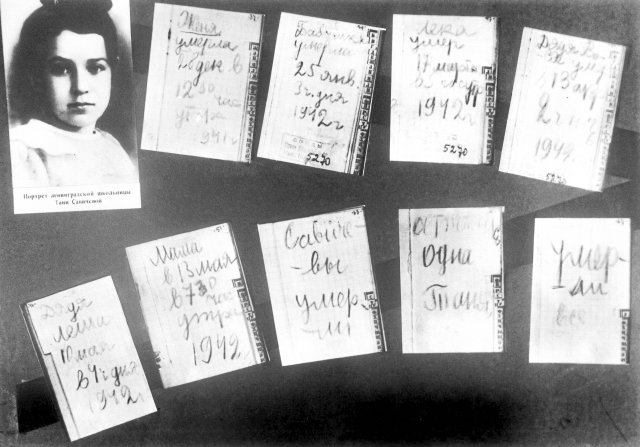 Портрет ленинградской школьницы
Тани Савичевой
Женя
умерла
28 дек в
12 30 час
утра
1941 г
Бабушка
умерла
25 янв.
3 ч. дня
1942 г
5270
Лека
умер
17 марта
в 5 час
1942 г
5270
Дядя Ва-
ся умер
13 апр
2 ч
1942 г
5270
Дядя
Леша
10 мая
в 4 ч дня
1942 г
Мама
в 13 мая
в 7 30
час
утра
1942 г
Савиче-
вы
умер-
ли
осталась
одна
Таня
умер-
ли
все